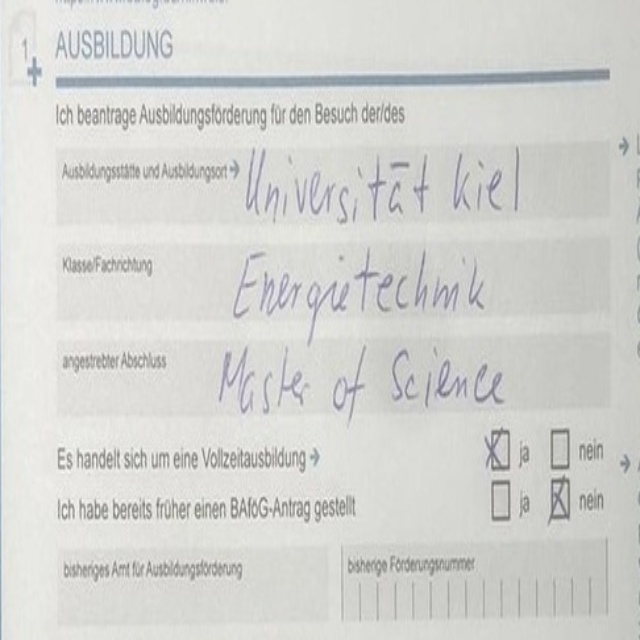 1
AUSBILDUNG
Ich beantrage Ausbildungsförderung für den Besuch der/des
Ausbildungsstätte und Ausbildungsort → Universität Kiel
Klasse/Fachrichtung Energietechnik
angestrebter Abschluss Master of Science
Es handelt sich um eine Vollzeitausbildung → ☒ ja ☐ nein
Ich habe bereits früher einen BAföG-Antrag gestellt ☐ ja ☒ nein
bisheriges Amt für Ausbildungsförderung bisherige Förderungsnummer